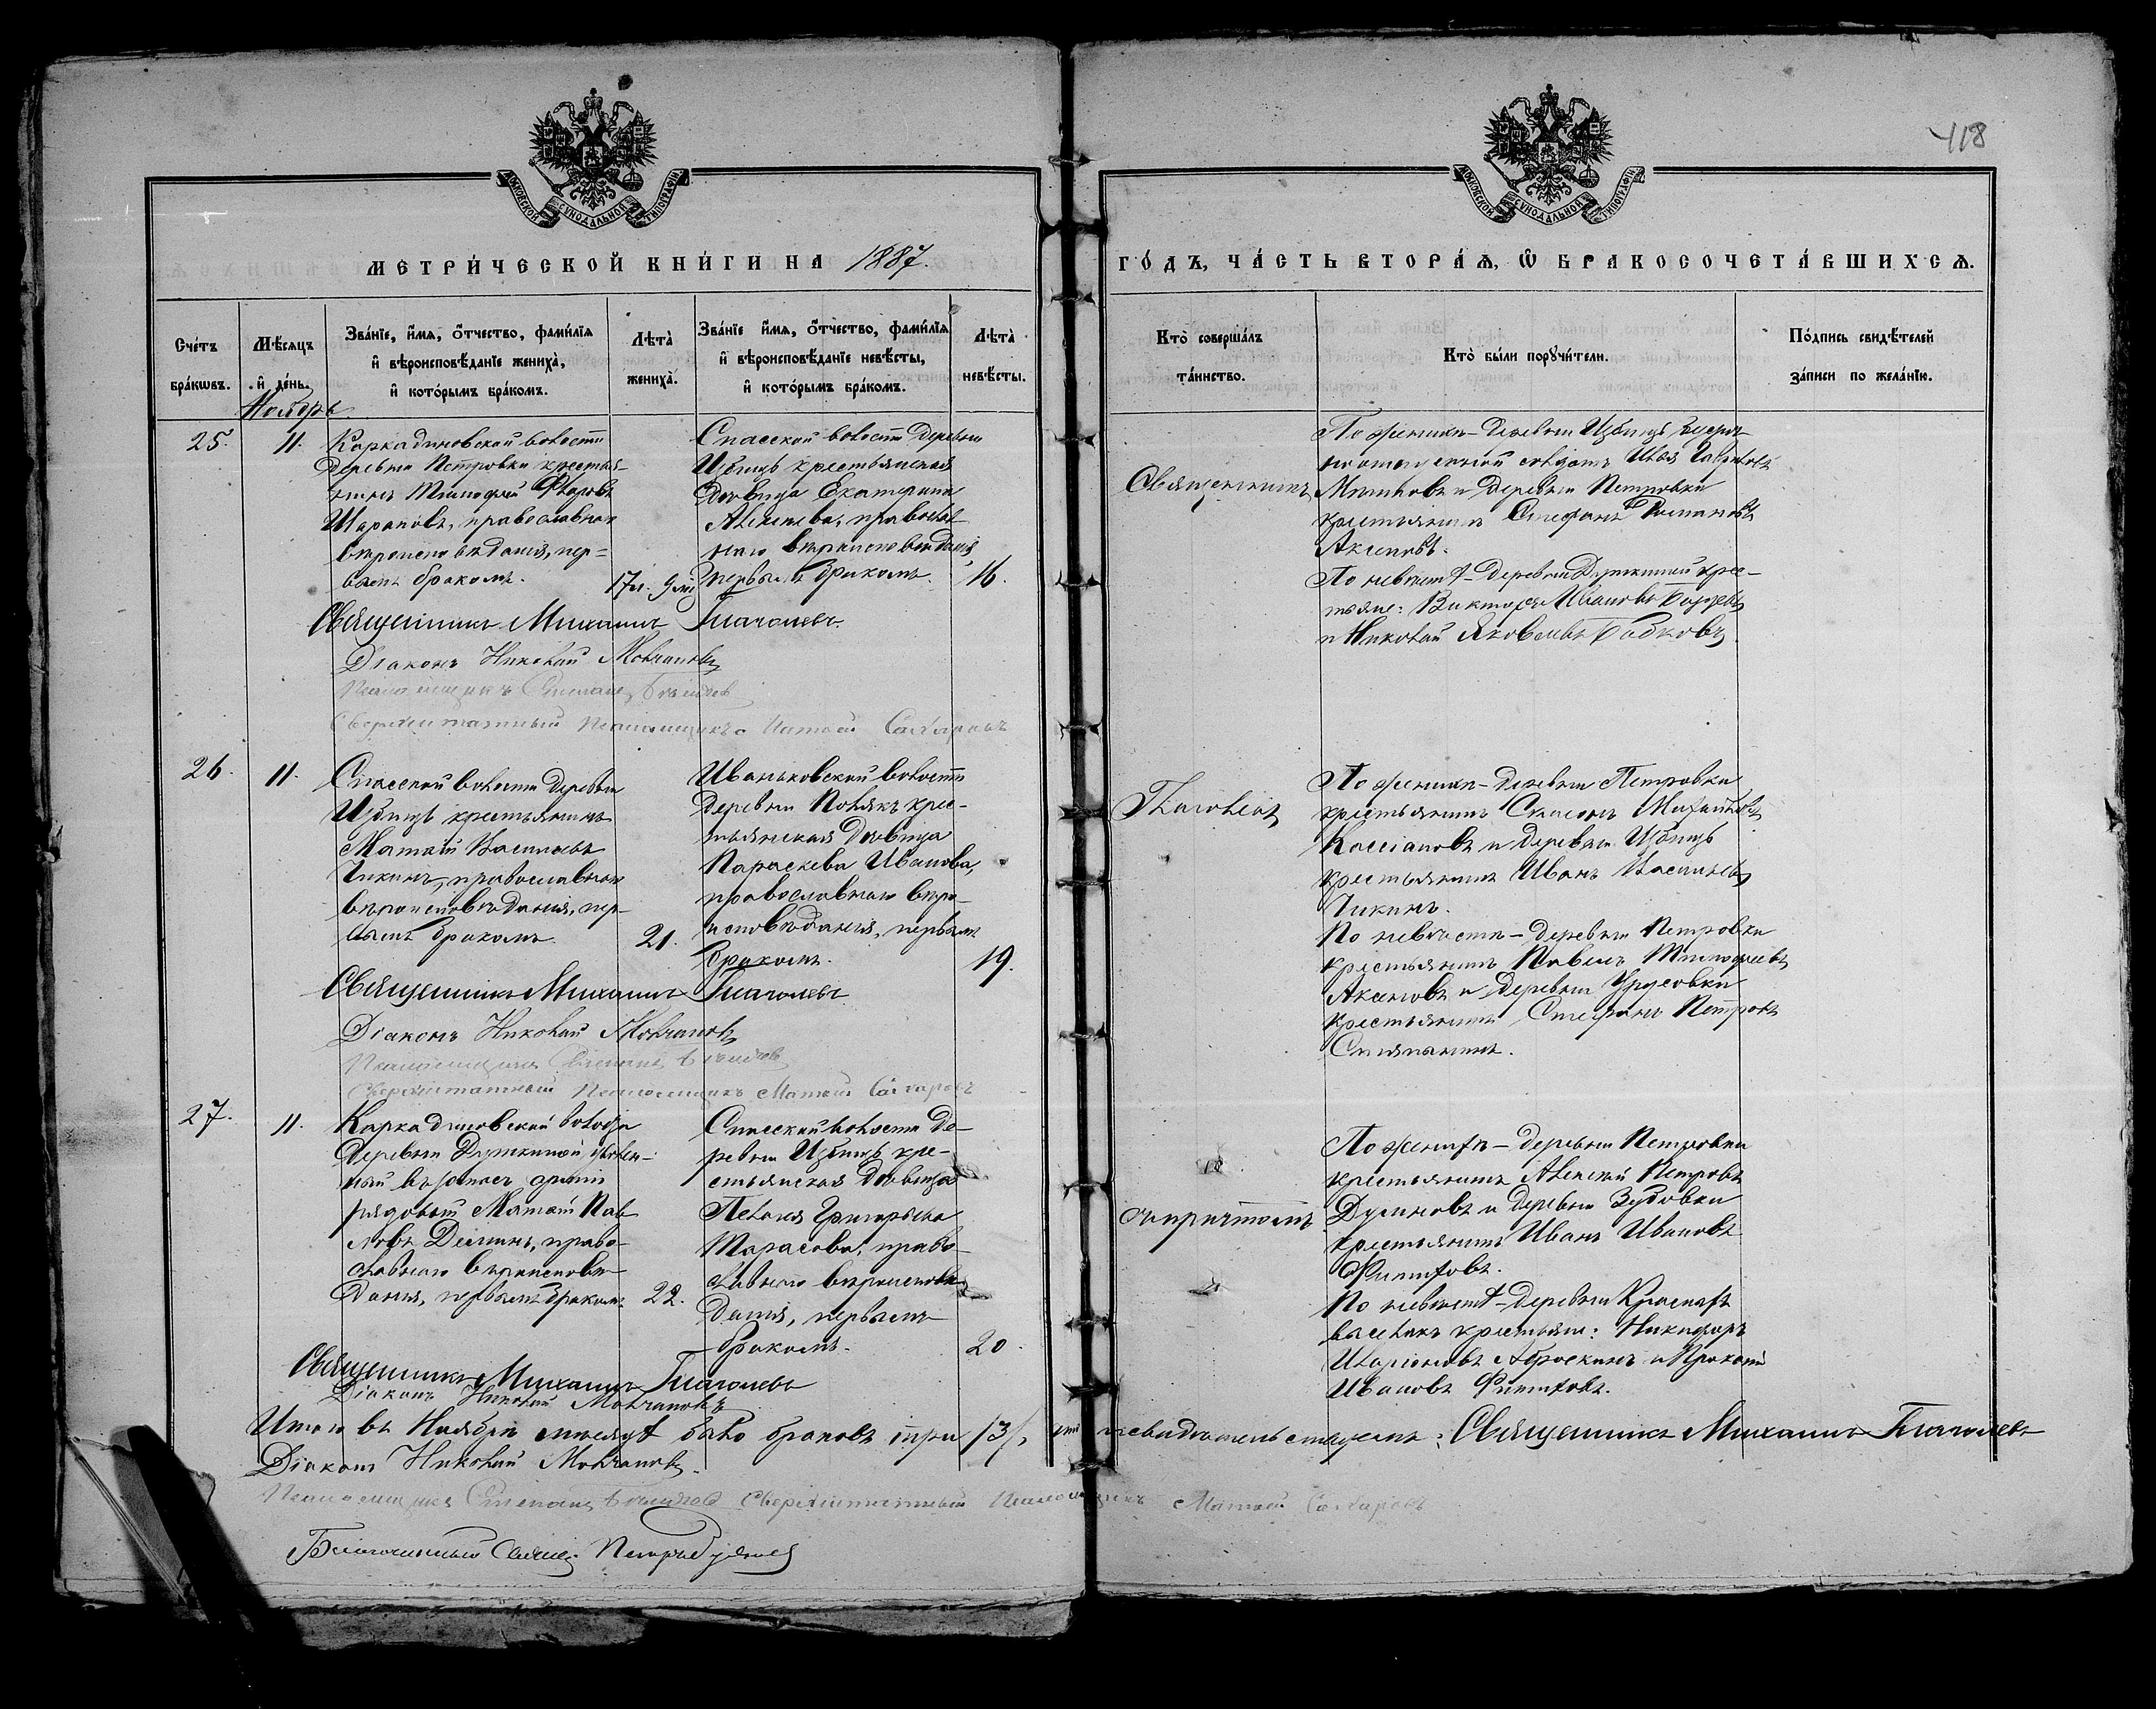 418
МОСКОВСКОЙ СѴНОДАЛЬНОЙ ТИПОГРАФІИ
МОСКОВСКОЙ СѴНОДАЛЬНОЙ ТИПОГРАФІИ
МЕТРИ́ЧЕСКОЙ КНИ́ГИ НА 1887.
ГО́ДЪ, ЧА́СТЬ ВТОРА́Ѧ, Ѽ БРАКОСОЧЕТА́ВШИХСѦ.
Сче́тъ бра́кѡвъ.
Мѣ́сѧцъ и҆ де́нь.
Зва́нїе, и҆́мѧ, о҆́тчество, фами́лїѧ и҆ вѣроисповѣ́данїе жениха̀, и҆ кото́рымъ бра́комъ.
Лѣта̀ жениха̀.
Зва́нїе и҆́мѧ, о҆́тчество, фами́лїѧ и҆ вѣроисповѣ́данїе невѣ́сты, и҆ кото́рымъ бра́комъ.
Лѣта̀ невѣ́сты.
Кто̀ соверша́лъ та́инство.
Кто̀ бы́ли порꙋчи́тели.
По́дпись свидѣ́телей за́писи по жела́нїю.
Ноябрь
25.
11.
Каркадиновской волости
деревни Петровки крестья-
нинъ Тимофей
Шараповъ, православнаго
вѣроисповѣданія, пер-
вымъ бракомъ.
17л. 9 м
Спасской волости деревни
Избищъ крестьянская
дѣвица Екатерина
Алексѣева, православ-
наго вѣроисповѣданія,
первымъ бракомъ.
16.
Священникъ
По женихѣ - деревни Избищъ
солдатъ Илья
и деревни Петровки
крестьянинъ Стефанъ
Аксеновъ.
По невѣстѣ - деревни Душкиной крес-
тьяне: Викторъ Ивановъ
и Николай Яковлевъ Бабковъ.
Священникъ Михаилъ Глаголевъ.
Діаконъ Николай Молчановъ
Псаломщикъ Степанъ
Сверхштатный Псаломщикъ Матѳей Сахаровъ
26.
11.
Спасской волости деревни
Избищъ крестьянинъ
Матѳей Васильевъ
Чикинъ, православнаго
вѣроисповѣданія, пер-
вымъ бракомъ.
21.
Иваньковской волости
деревни Полякъ крес-
тьянская дѣвица
Параскева Иванова,
православнаго вѣро-
исповѣданія, первымъ
бракомъ.
19.
Глаголевъ
По женихѣ - деревни Петровки
крестьянинъ Михайловъ
Кассіановъ и деревни Избищъ
крестьянинъ Иванъ Васильевъ
Чикинъ.
По невѣстѣ - деревни Петровки
крестьянинъ Павелъ Тимофеевъ
Аксеновъ и деревни Урусовки
крестьянинъ Стефанъ Петровъ
Священникъ Михаилъ Глаголевъ
Діаконъ Николай Молчановъ
Псаломщикъ Степанъ
Сверхштатный Псаломщикъ Матѳей Сахаровъ
27.
11.
Каркадиновской волости
деревни Душкиной уволен-
ный въ запасъ арміи
рядовой Матѳей Пав-
ловъ Деминъ, право-
славнаго вѣроисповѣ-
данія, первымъ бракомъ
22.
Спасской волости де-
ревни Избищъ кре-
стьянская дѣвица
Пелагея Григорьева
Тарасова, право-
славнаго вѣроисповѣ-
данія, первымъ
бракомъ.
20.
съ причтомъ
По женихѣ - деревни Петровки
крестьянинъ Алексѣй Петровъ
и деревни Зубовки
крестьянинъ Иванъ Ивановъ
Филатовъ.
По невѣстѣ - деревни
выселокъ крестьяне: Никифоръ
Иларіоновъ Аброськинъ и Прокопій
Ивановъ
Священникъ Михаилъ Глаголевъ
Діаконъ Николай Молчановъ
Итого въ Ноябрѣ мѣсяцѣ было браковъ три /3/, свидѣтельствуемъ: Священникъ Михаилъ Глаголевъ
Діаконъ Николай Молчановъ.
Псаломщикъ Степанъ Сверхштатный Псаломщикъ Матѳей Сахаровъ
Благочинный Священ. Петръ